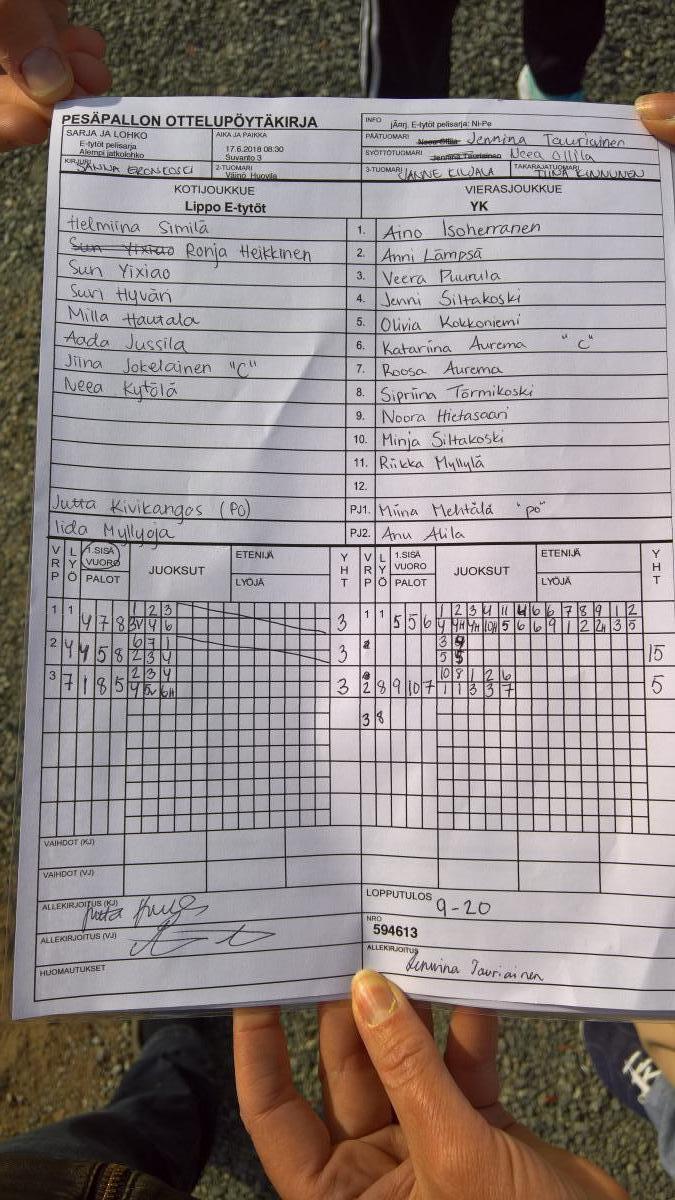 PESÄPALLON OTTELUPÖYTÄKIRJA
INFO (Järj. E-tytöt pelisarja: Ni-Pe
SARJA JA LOHKO
E-tytöt pelisarja
Alempi jatkolohko
AIKA JA PAIKKA
17.6.2018 08:30
Suvanto 3
PÄÄTUOMARI Neea Ollila Jennina Tauriainen
SYÖTTÖTUOMARI Jennina Tauriainen Neea Ollila
KIRJURI SANNA ERONKOSKI
2-TUOMARI Väinö Huovila
3-TUOMARI JANNE KUJALA
TAKARAJATUOMARI TIINA KINNUNEN
KOTIJOUKKUE
Lippo E-tytöt
VIERASJOUKKUE
YK
Helmiina Similä 1. Aino Isoherranen
Sun Yixiao Ronja Heikkinen 2. Anni Lämpsä
Sun Yixiao 3. Veera Puurula
Suri Hyväri 4. Jenni Siltakoski
Milla Hautala 5. Olivia Kokkoniemi
Aada Jussila 6. Katariina Aurema "C"
Jiina Jokelainen "C" 7. Roosa Aurema
Neea Kytölä 8. Sipriina Törmikoski
9. Noora Hietasaari
10. Minja Siltakoski
11. Riikka Myllylä
12.
Jutta Kivikangos (PO) PJ1. Miina Mehtälä "po"
Iida Myllyoja PJ2. Anu Alila
VRP LYÖ 1.SISÄ VUORO PALOT JUOKSUT ETENIJÄ LYÖJÄ YHT VRP LYÖ 1.SISÄ VUORO PALOT JUOKSUT ETENIJÄ LYÖJÄ YHT
1 2 3 1 2 3 4 11 4 6 6 7 8 9 1 2
1 1 4 7 8 3V 4 6 3 1 1 5 5 6 4 4H 4H 10H 5 6 6 9 1 2 2H 3 5
6 7 1 3 9
2 4 4 5 8 2 3 4 3 2 5 5 15
2 3 4 10 8 1 2 6
3 7 1 8 5 4 5V 6H 3 2 8 9 10 7 1 1 3 3 7 5
3 8
VAIHDOT (KJ)
VAIHDOT (VJ)
ALLEKIRJOITUS (KJ)
LOPPUTULOS 9-20
ALLEKIRJOITUS (VJ)
NRO
594613
HUOMAUTUKSET
ALLEKIRJOITUS
Jennina Tauriainen